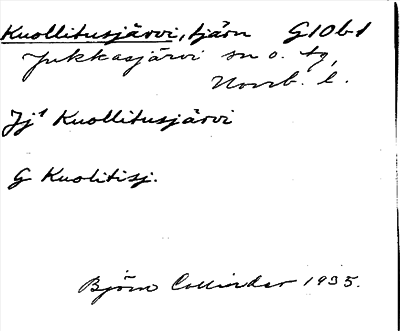 Kuollitusjärvi, tjärn G10b1
Jukkasjärvi sn o. tg,
Norrb. l.
Jj¹ Kuollitusjärvi
G Kuolitisj.
Björn Collinder 1935.